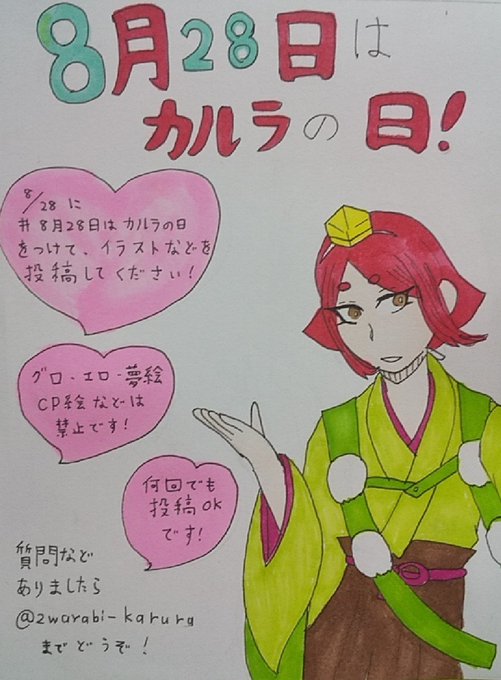 8月28日は
カルラの日!
8/28 に
#8月28日はカルラの日
をつけて、イラストなどを
投稿してください!
グロ・エロ・夢絵
CP絵などは
禁止です!
何回でも
投稿OK
です!
質問など
ありましたら
@2warabi-karura
までどうぞ!